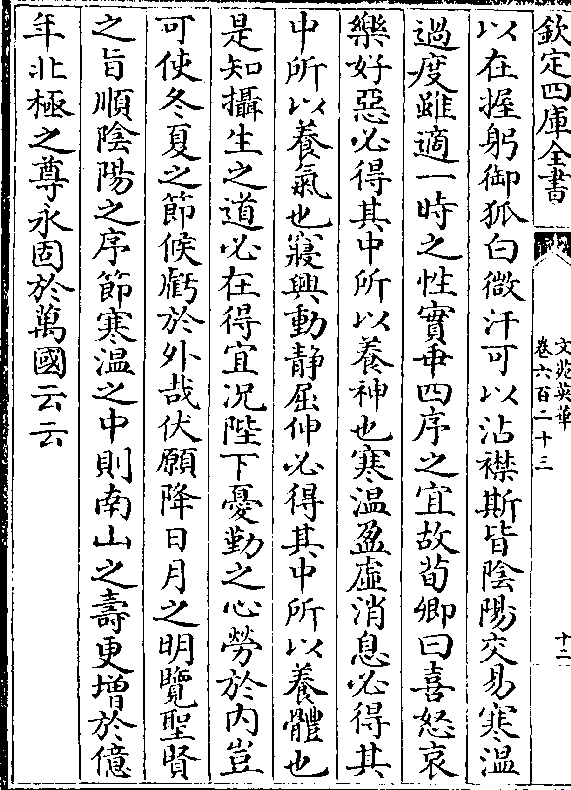 欽定四庫全書
文苑英華
卷六百二十三
十二
以在握躬御狐白微汗可以沾襟斯皆陰陽交易寒溫
過度雖適一時之性實乖四序之宜故荀卿曰喜怒哀
樂好惡必得其中所以養神也寒温盈虛消息必得其
中所以養氣也寢興動靜屈伸必得其中所以養體也
是知攝生之道必在得宜况陛下憂勤之心勞於内豈
可使冬夏之節候虧於外哉伏願降日月之明覽聖賢
之旨順陰陽之序節寒温之中則南山之壽更增於億
年北極之尊永固於萬國云云